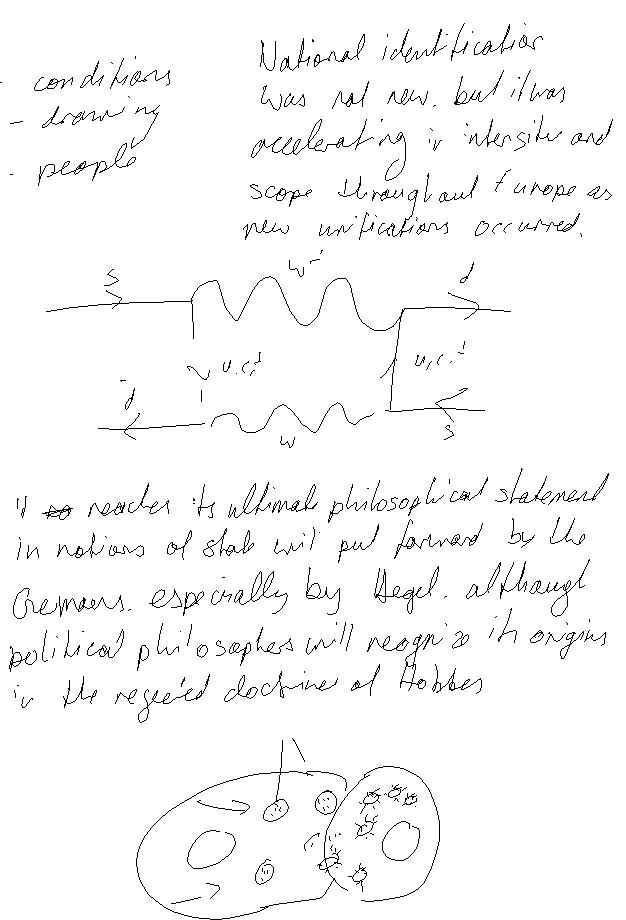 - conditions
- drawing
- people
National identification
was not new, but it was
accelerating in intensity and
scope throughout Europe as
new unifications occurred.
s
W
d
u,c,t
u,c,t
d
W
s
it reaches its ultimate philosophical statement
in notions of state will put forward by the
Germans, especially by Hegel, although
political philosophers will recognize its origins
in the rejected doctrine of Hobbes